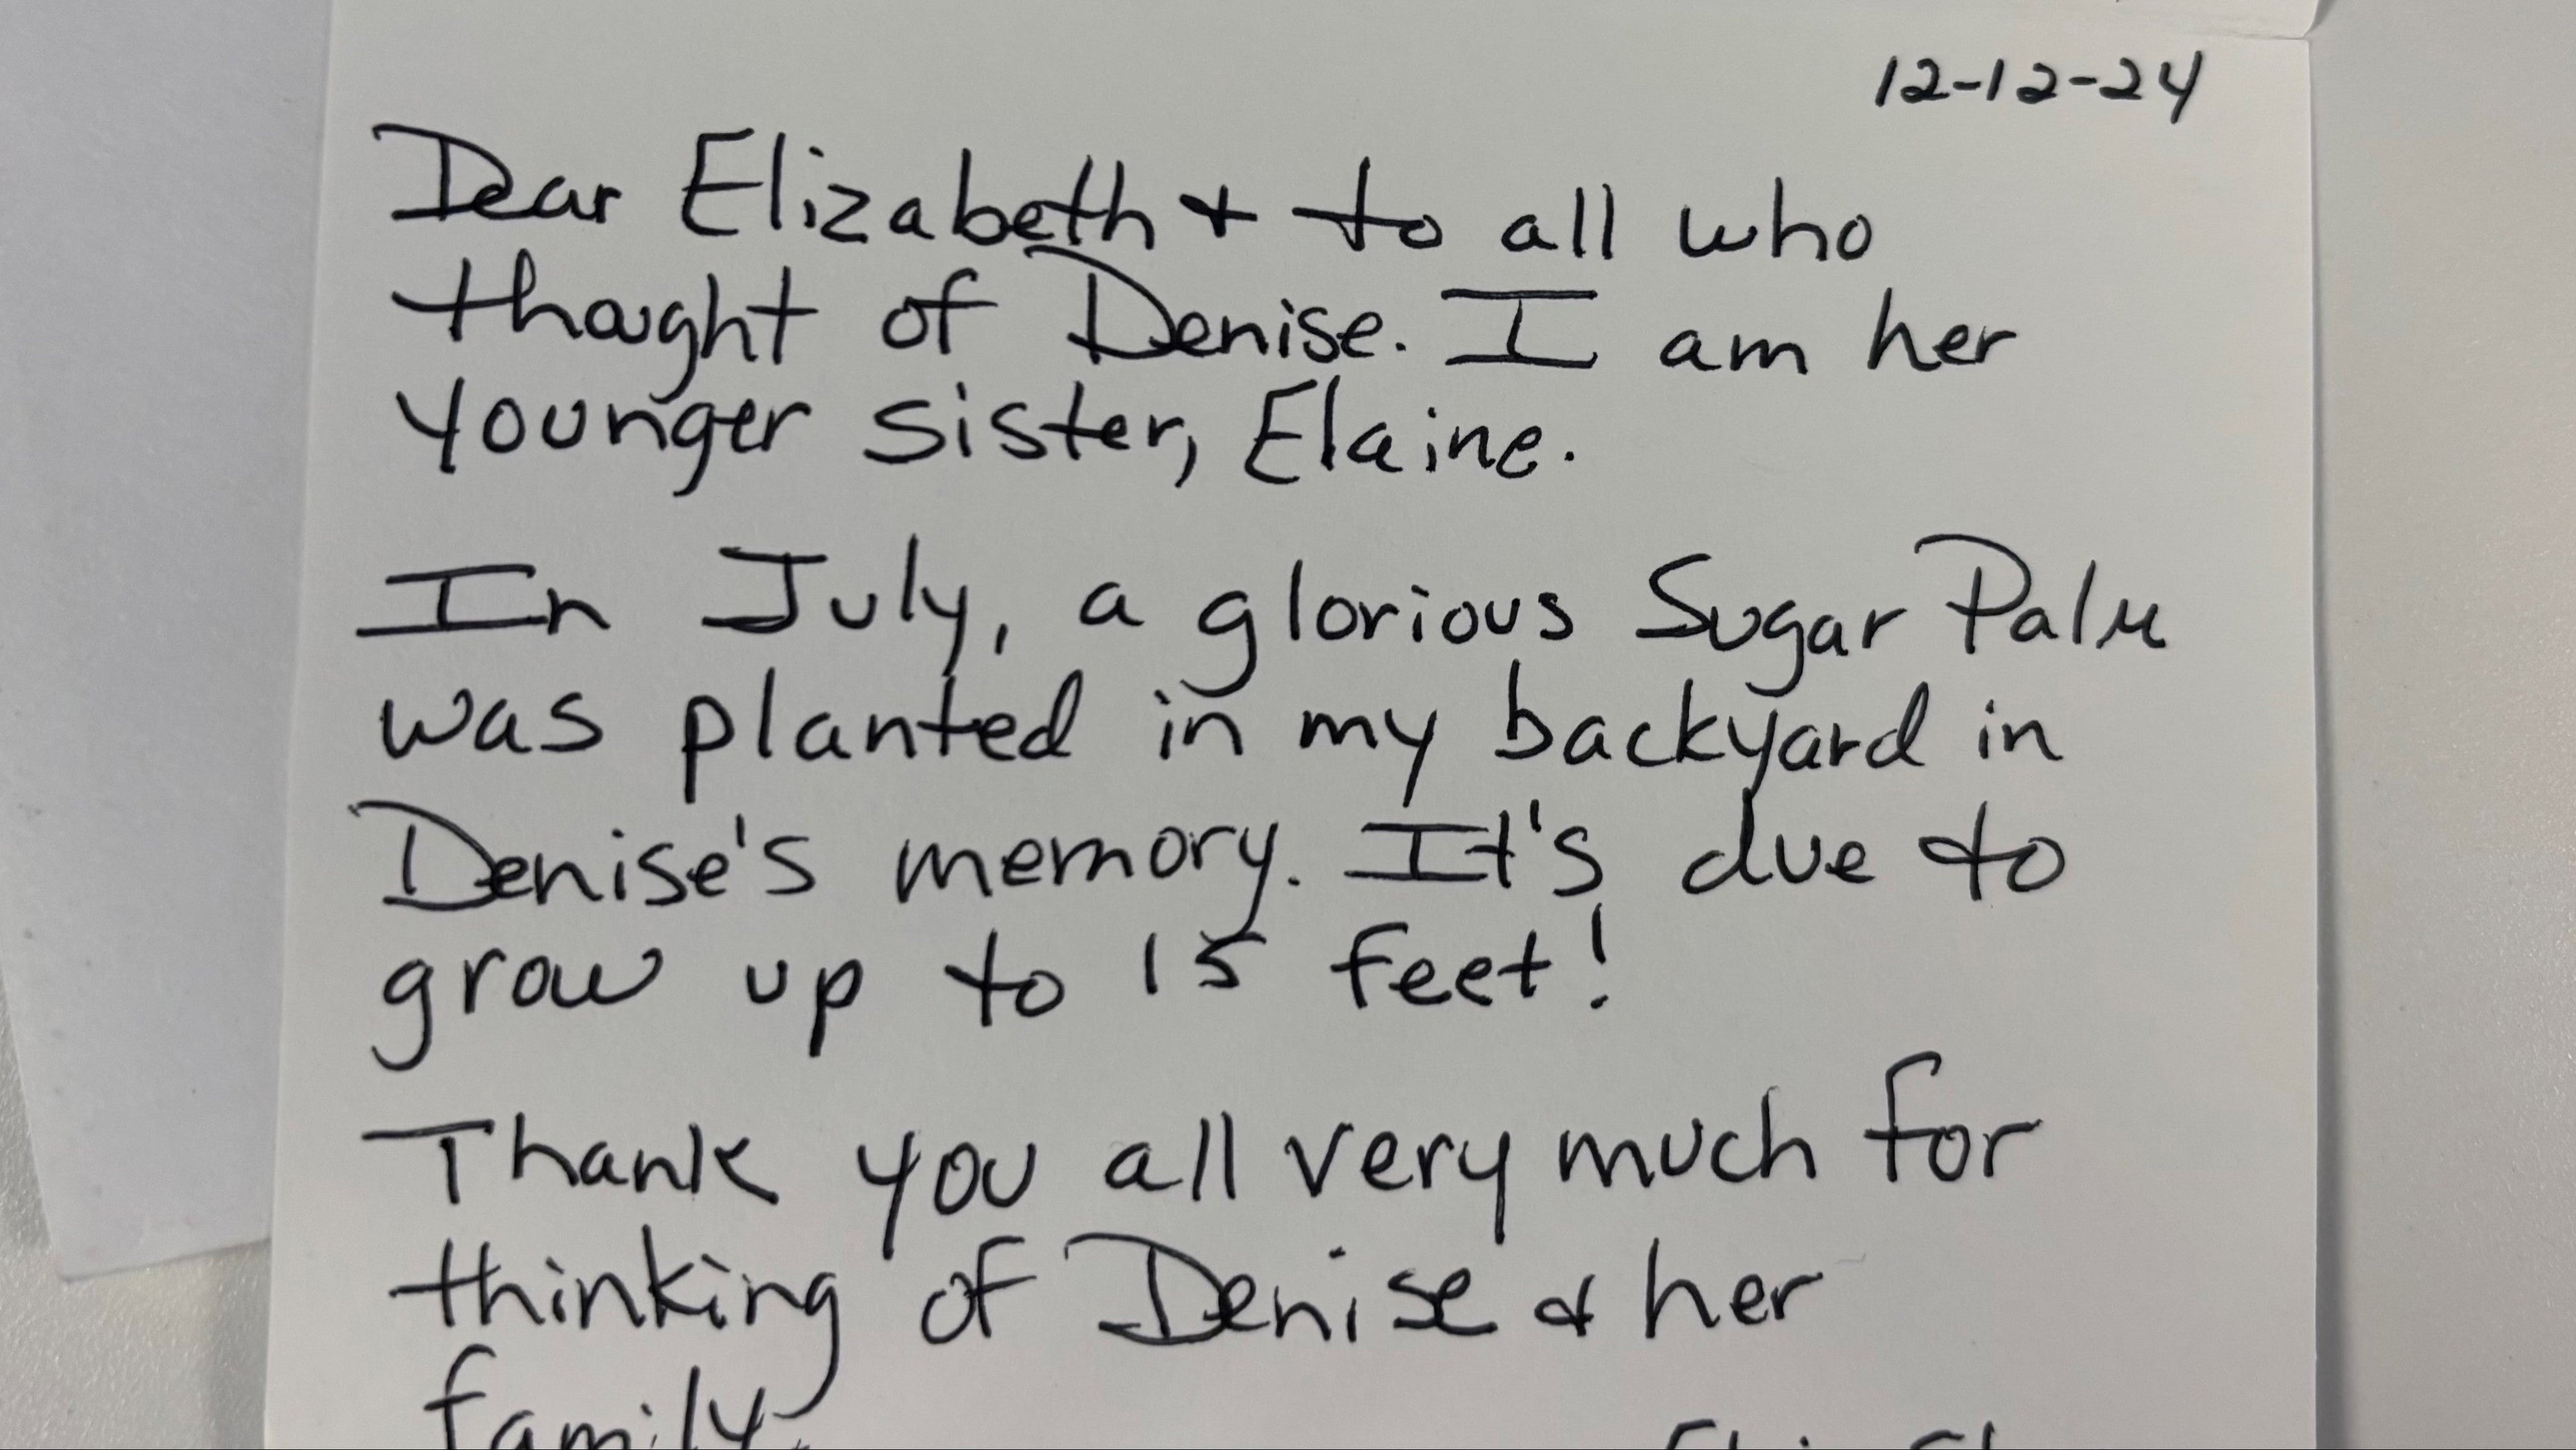 12-12-24
Dear Elizabeth & to all who
thought of Denise. I am her
younger sister, Elaine.
In July, a glorious Sugar Palm
was planted in my backyard in
Denise's memory. It's due to
grow up to 15 feet!
Thank you all very much for
thinking of Denise & her
family.